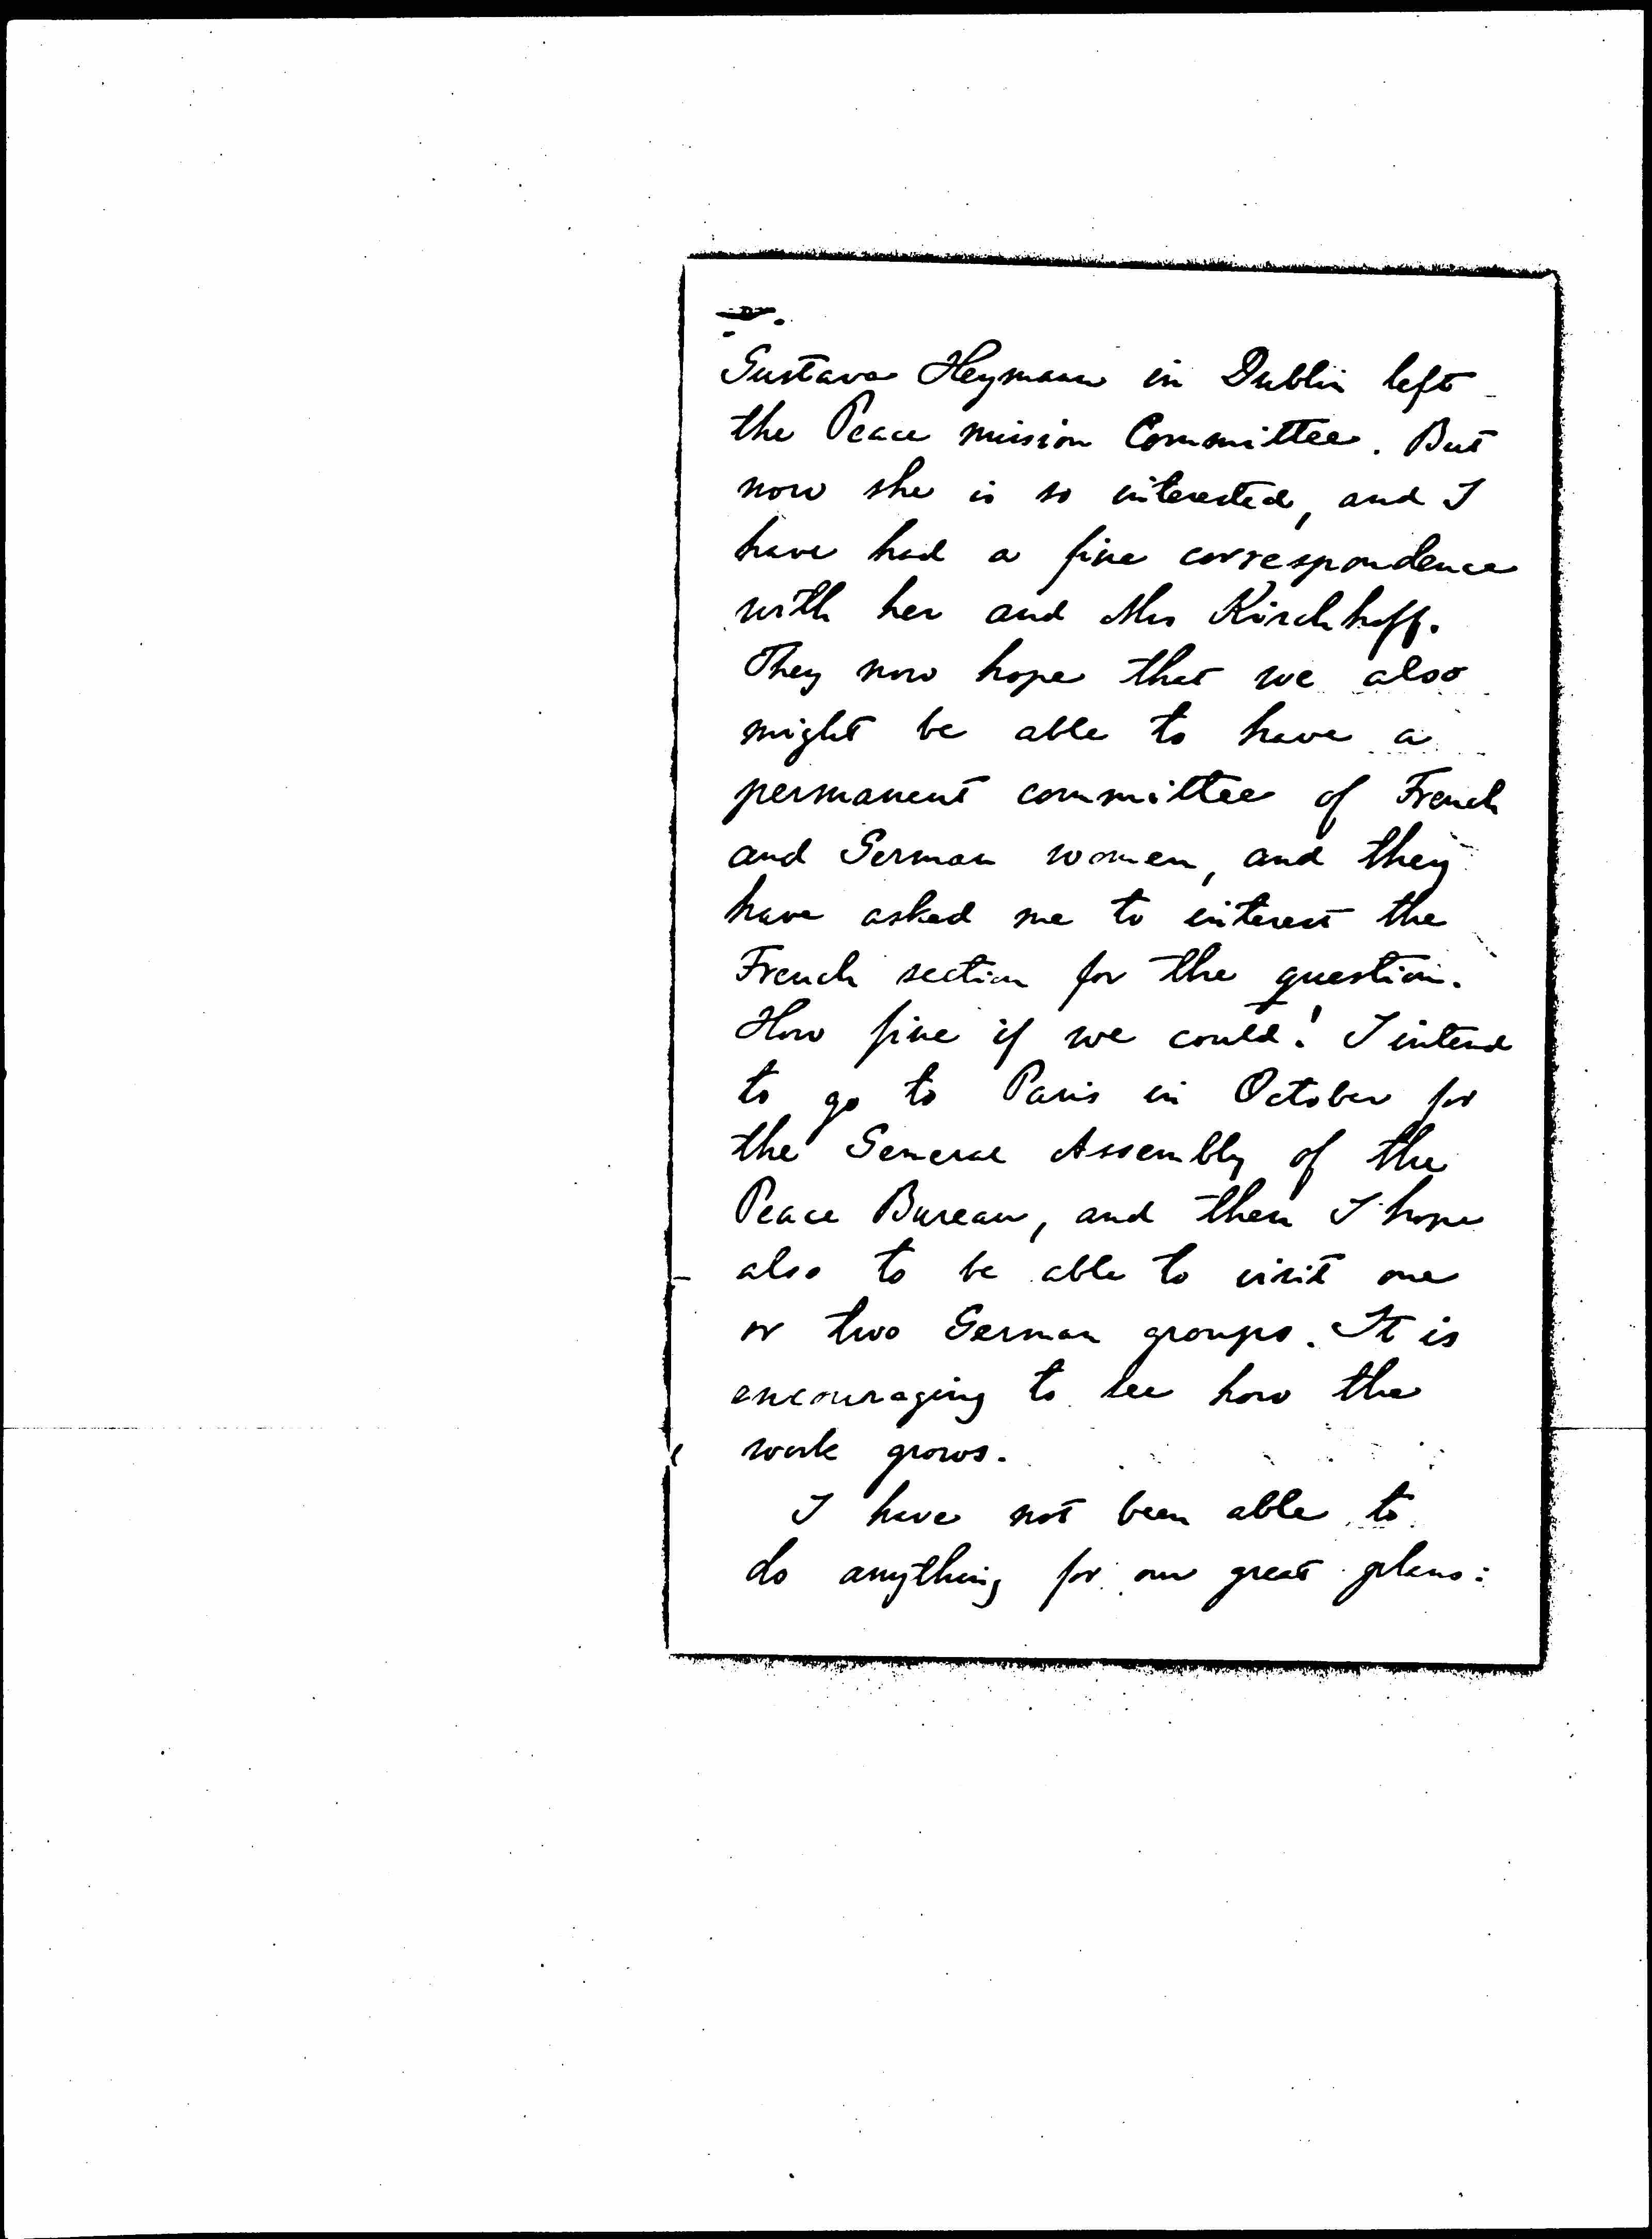 Gustava Heymann in Dublin left
the Peace mission Committee. But
now she is so interested, and I
have had a fine correspondence
with her and Mrs Kirchhoff.
They now hope that we also
might be able to have a
permanent committee of French
and German women, and they
have asked me to interest the
French section for the question.
How fine if we could! I intend
to go to Paris in October for
the General Assembly of the
Peace Bureau, and then I hope
also to be able to visit one
or two German groups. It is
encouraging to see how the
work grows.
I have not been able to
do anything for our great plans: